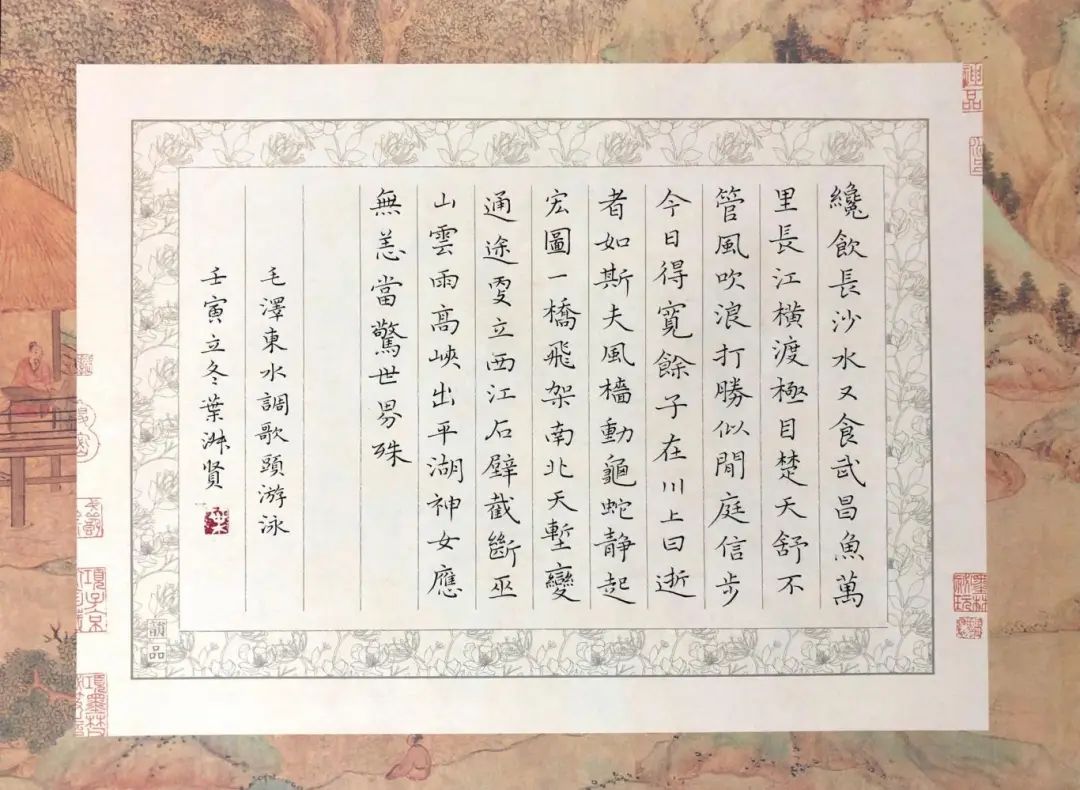 纔飲長沙水又食武昌魚萬
里長江橫渡極目楚天舒不
管風吹浪打勝似閒庭信步
今日得寬餘子在川上曰逝
者如斯夫風檣動龜蛇静起
宏圖一橋飛架南北天塹變
通途更立西江石壁截斷巫
山雲雨高峽出平湖神女應
無恙當驚世界殊
毛澤東水調歌頭游泳
壬寅立冬葉賢
韻品
神品